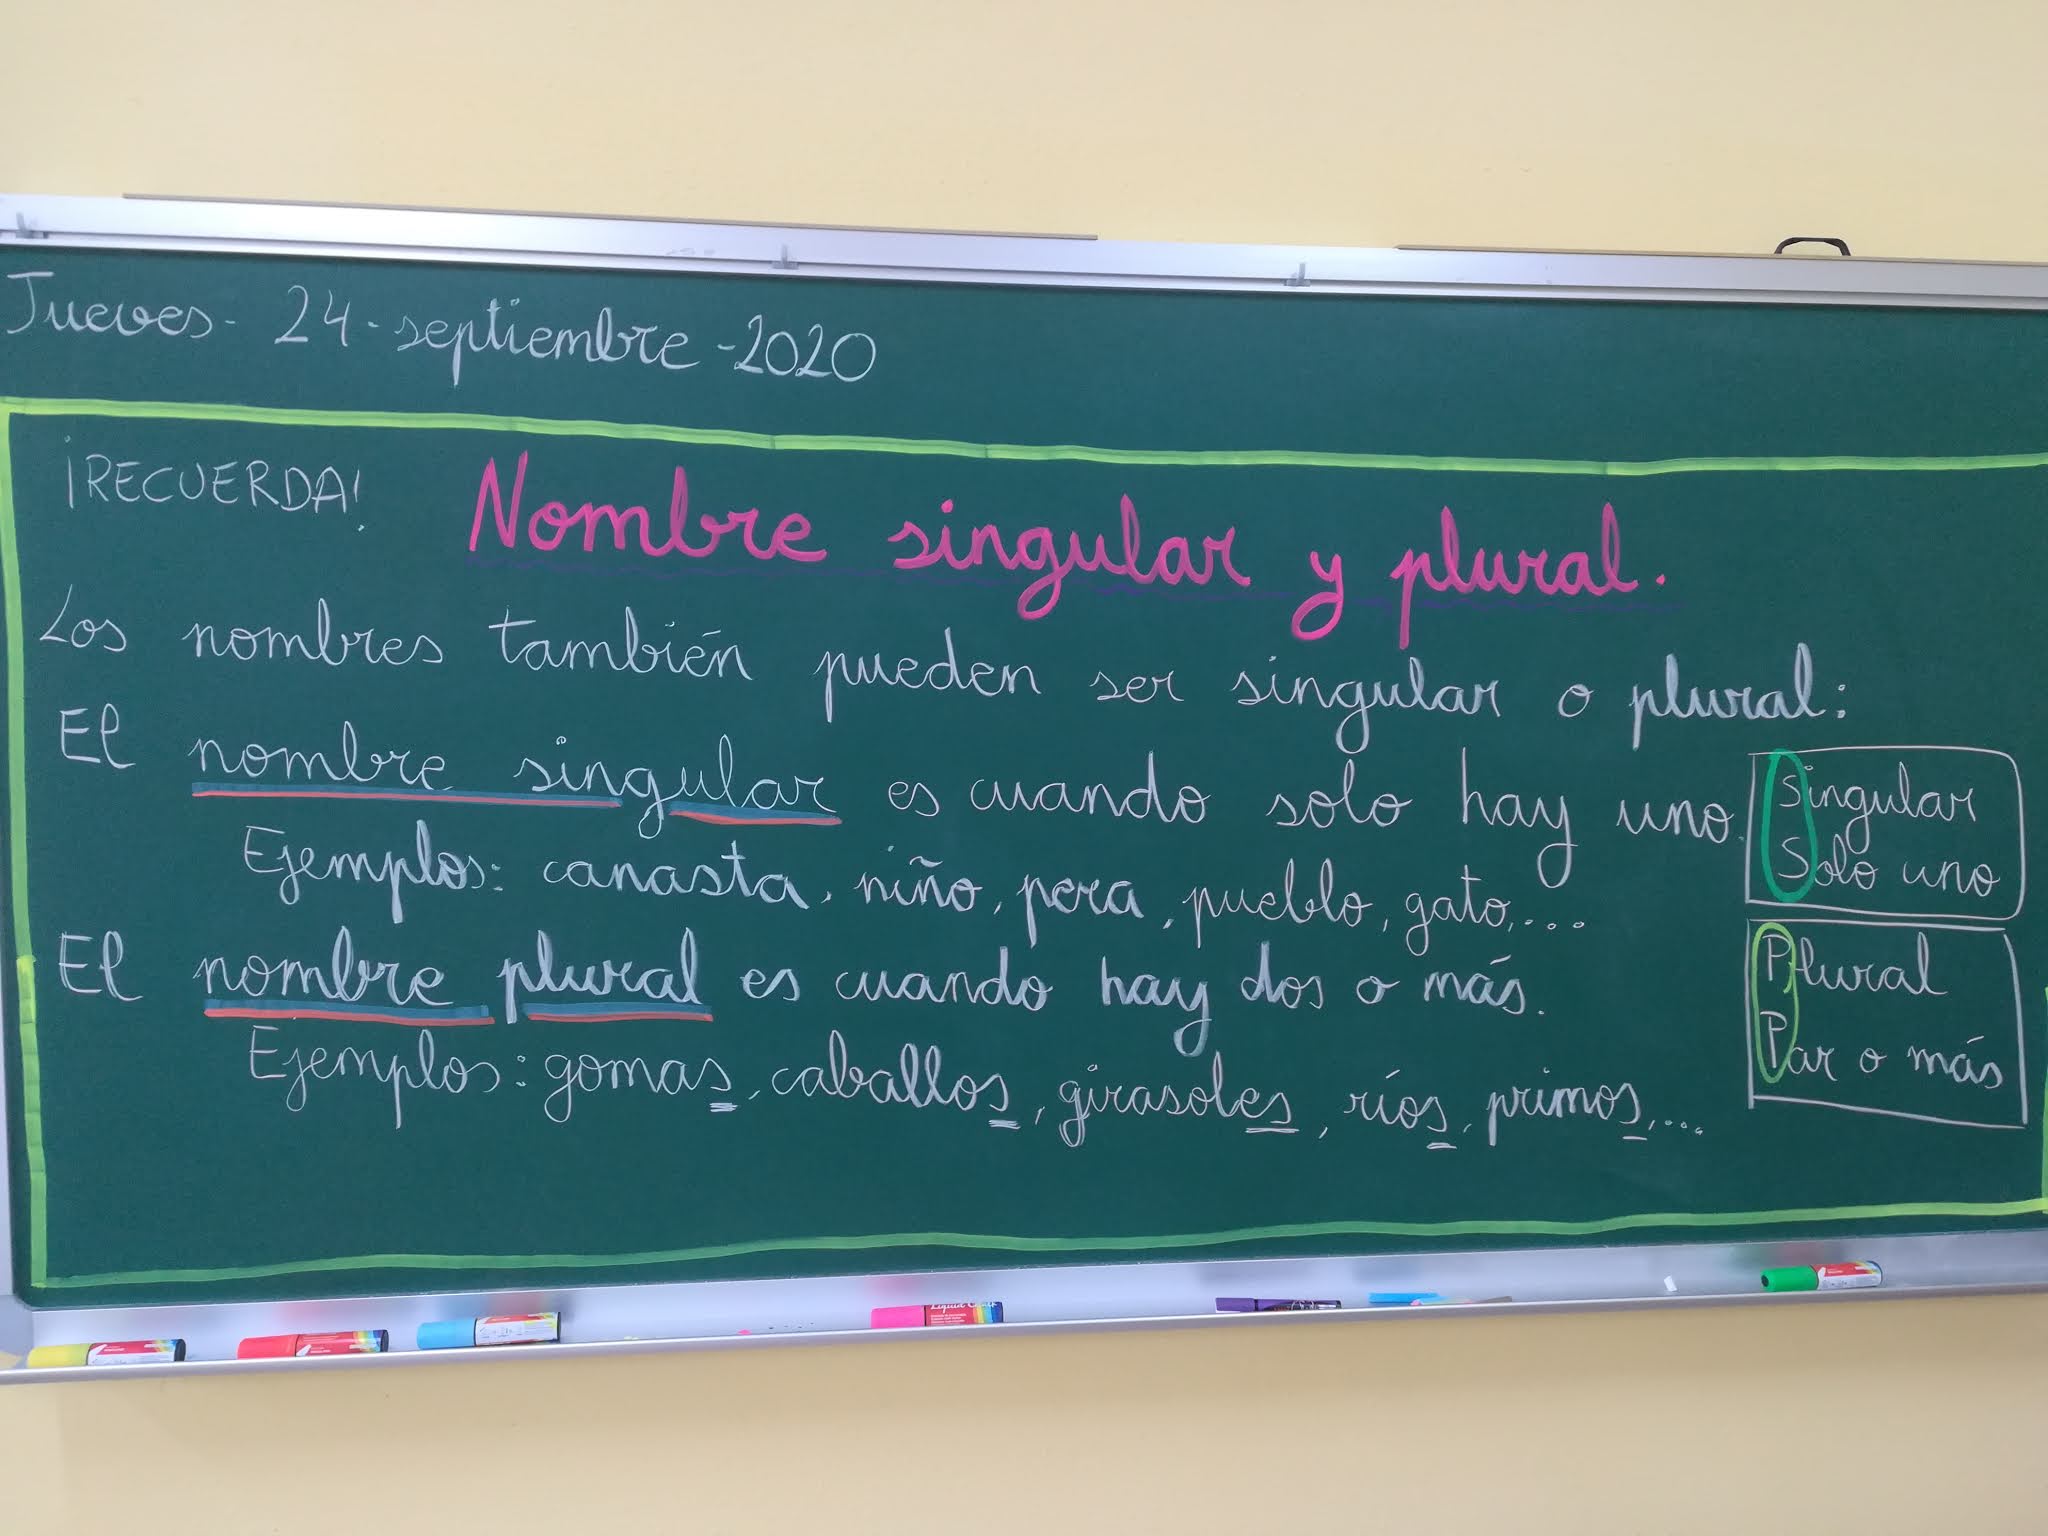 Jueves - 24 - septiembre - 2020
¡RECUERDA!
Nombre singular y plural.
Los nombres también pueden ser singular o plural:
El nombre singular es cuando solo hay uno.
Ejemplos: canasta, niño, pera, pueblo, gato,...
El nombre plural es cuando hay dos o más.
Ejemplos: gomas, caballos, girasoles, ríos, primos,...
Singular
Solo uno
Plural
Par o más
Liquid Chalk